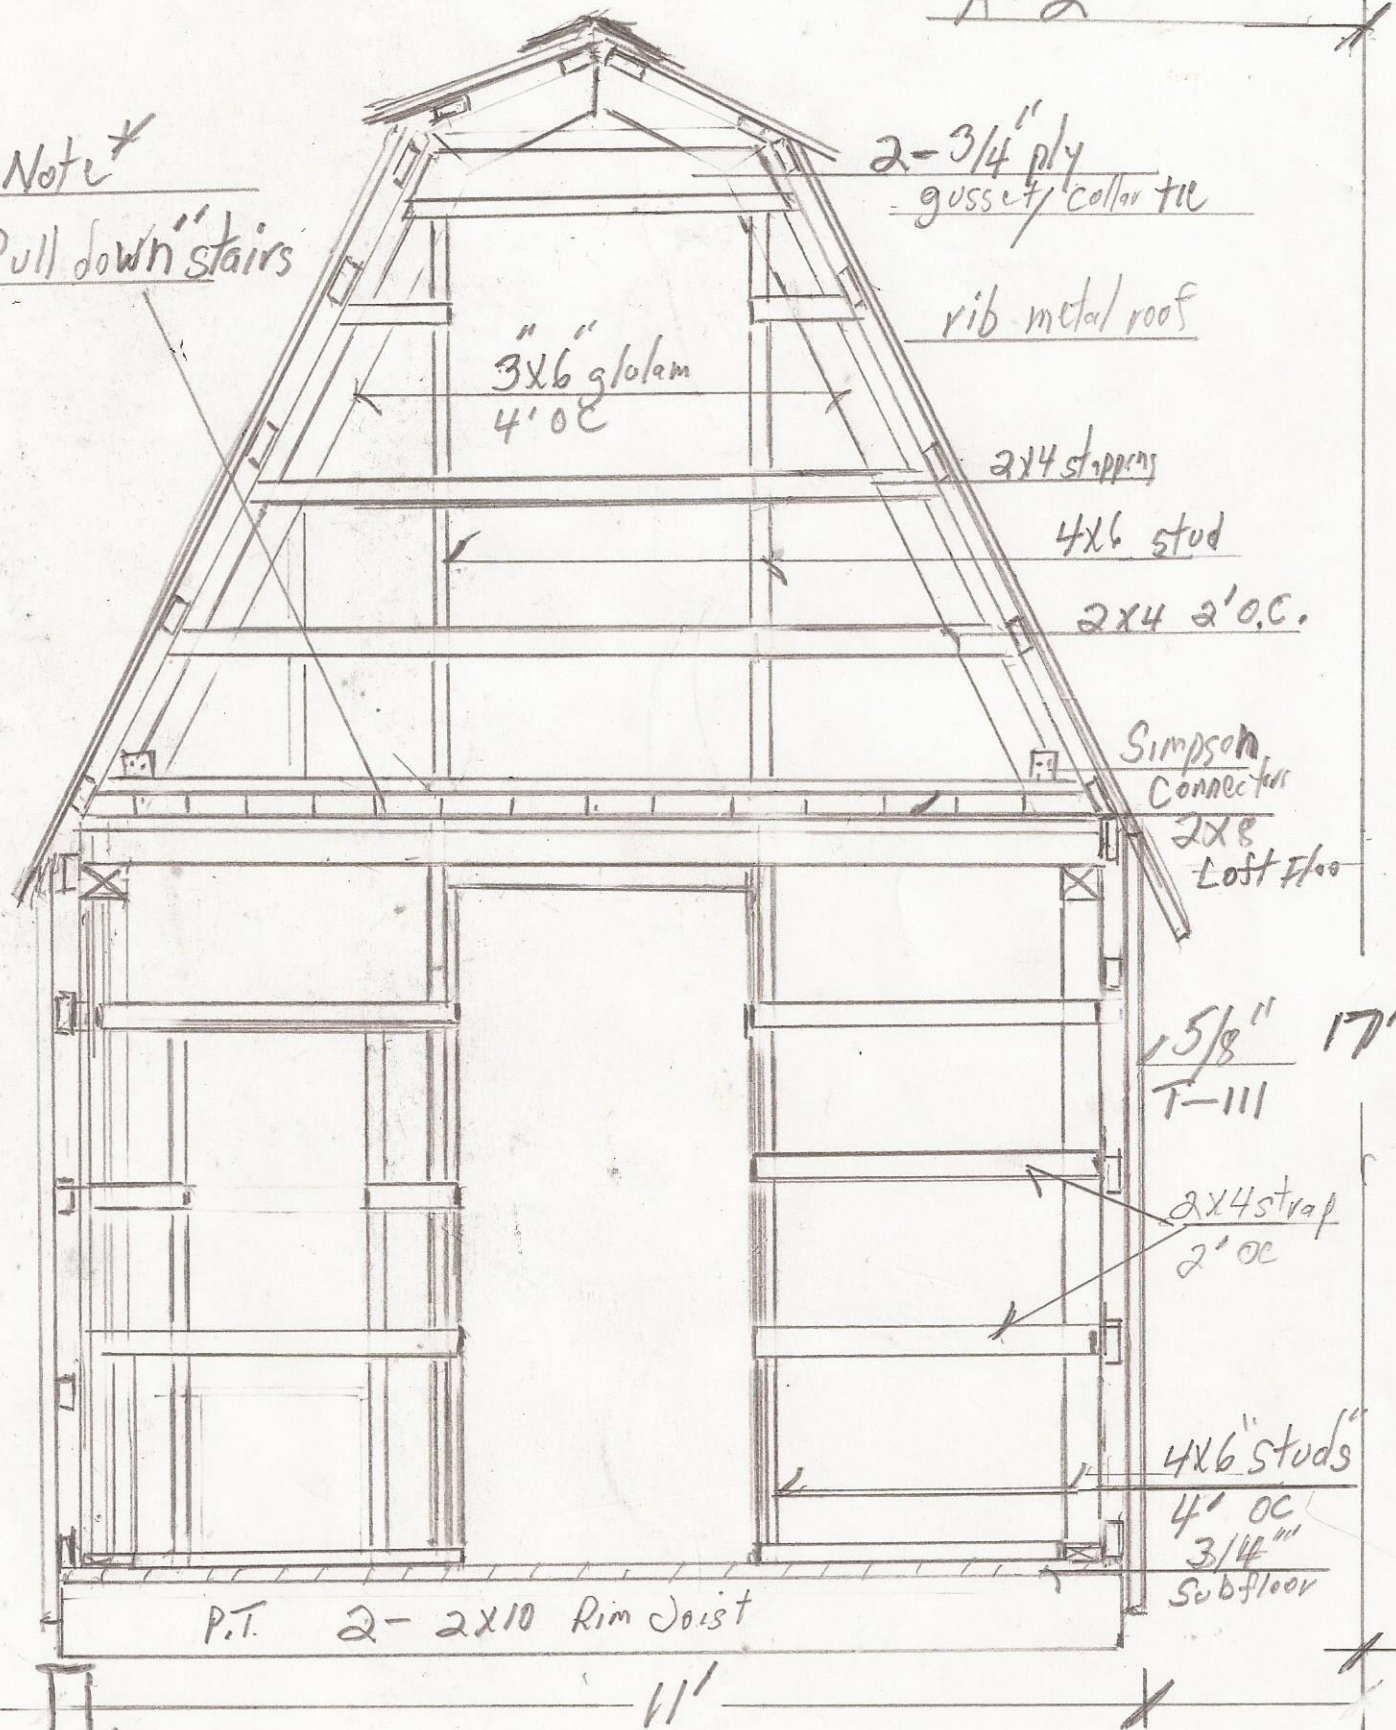 A-2
Note*
Pull down" stairs
2-3/4" ply
gusset/collar tie
rib metal roof
3"X6" glulam
4' OC
2x4 stapping
4X6 stud
2X4 2' O.C.
Simpson
Connectors
2X8
Loft Floo
5/8"
T-111
17'
2X4 strap
2' OC
4X6" studs"
4' OC
3/4"
Subfloor
P.T. 2- 2X10 Rim Joist
11'